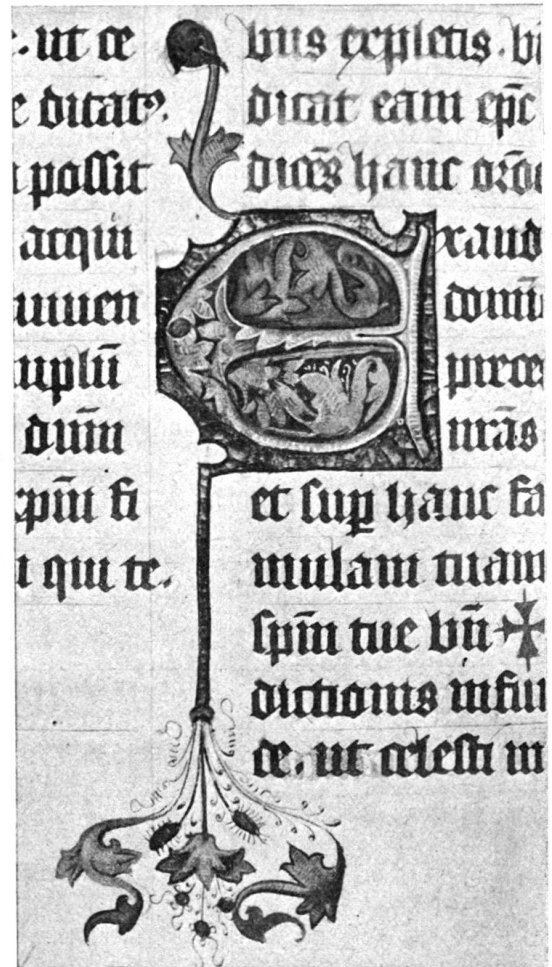 . ut ce
e ditatꝰ.
possit
acqui
uiuen
uplū
dūm
xp̄m fi
qui te.
bus expletis. bn
dicat eam ep̄c
dicēs hanc orōe
Exaud
domin
preces
nrās
et suꝑ hanc fa
mulam tuam
sp̄m tue bn̄ ✠
dictionis infun
de. ut celesti m